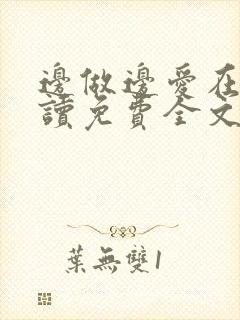 邊做邊愛在
讀免費全文
葉無雙1